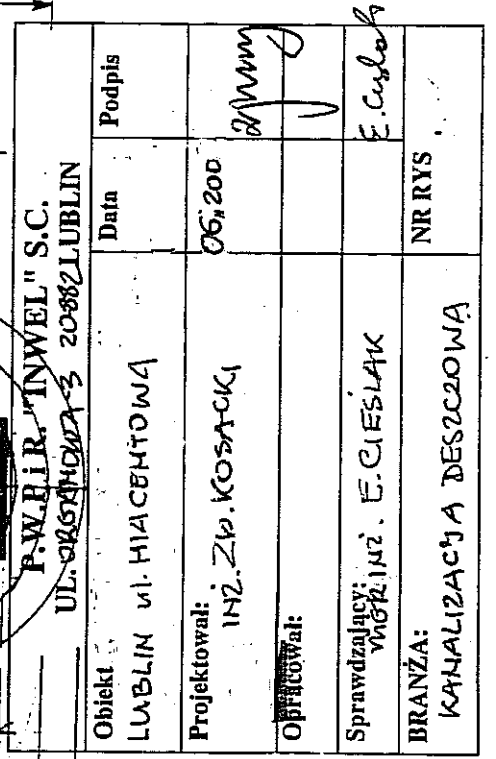 P.W.P.i R. "INWEL" S.C.
UL. ORGANOWA 3 20-882 LUBLIN
Obiekt Data Podpis
LUBLIN ul. HIACENTOWA
Projektował:
INŻ. ZB. KOSACKI 06,200
Opracował:
Sprawdzający:
MGR INŻ. E. CIEŚLAK E. Cieślak
BRANŻA: NR RYS
KANALIZACJA DESZCZOWA